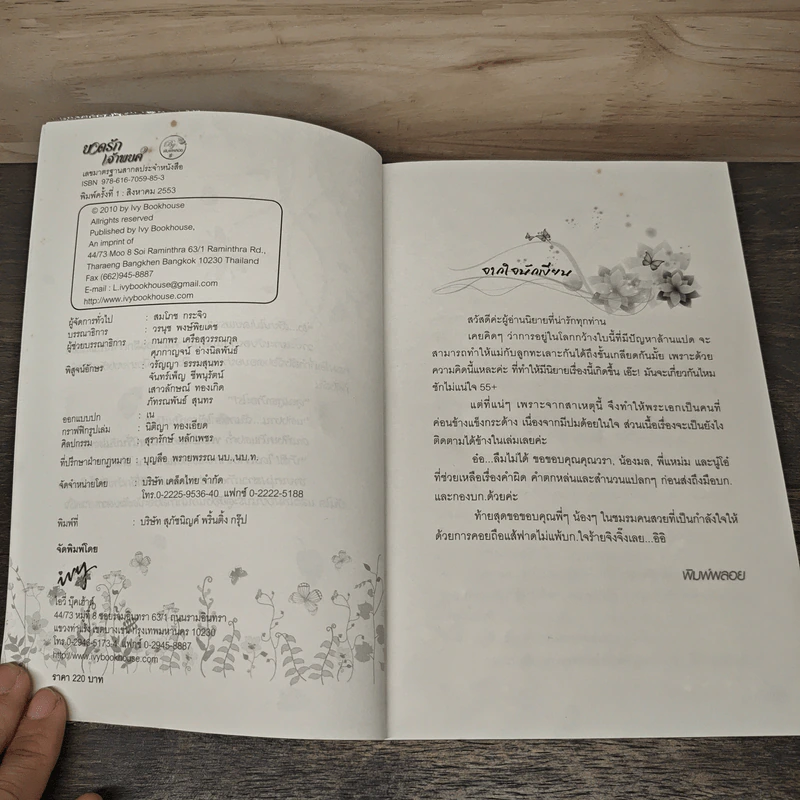 หวดรัก
เจ้าพนต์
เลขมาตรฐานสากลประจำหนังสือ
ISBN 978-616-7059-85-3
พิมพ์ครั้งที่ 1 : สิงหาคม 2553
© 2010 by Ivy Bookhouse
Allrights reserved
Published by Ivy Bookhouse,
An imprint of
44/73 Moo 8 Soi Raminthra 63/1 Raminthra Rd.,
Tharaeng Bangkhen Bangkok 10230 Thailand
Fax (662)945-8887
E-mail : L.ivybookhouse@gmail.com
http://www.ivybookhouse.com
ผู้จัดการทั่วไป : สมโภช กระจิ๋ว
บรรณาธิการ : วรนุช พงษ์พิยเดช
ผู้ช่วยบรรณาธิการ : กนกพร เครือสุวรรณกุล
ศุภกาญจน์ อ่างนิลพันธ์
พิสูจน์อักษร : วรัญญา ธรรมสุนทร
จันทร์เพ็ญ ชีพนุรัตน์
เสาวลักษณ์ ทองเกิด
ภัทรณพันธ์ สุนทร
ออกแบบปก : เน
กราฟฟิกรูปเล่ม : นิติญา ทองเอียด
ศิลปกรรม : สุรารักษ์ หลักเพชร
ที่ปรึกษาฝ่ายกฎหมาย : บุญลือ พรายพรรณ นบ.,นบ.ท.
จัดจำหน่ายโดย : บริษัท เคล็ดไทย จำกัด
โทร.0-2225-9536-40 แฟกซ์ 0-2222-5188
พิมพ์ที่ : บริษัท สุภัชนิญค์ พริ้นติ้ง กรุ๊ป
จัดพิมพ์โดย
ivy
ไอวี่ บุ๊คเฮ้าส์
44/73 หมู่ที่ 8 ซอยรามอินทรา 63/1 ถนนรามอินทรา
แขวงท่าแร้ง เขตบางเขน กรุงเทพมหานคร 10230
โทร.0-2948-5173-4 แฟกซ์ 0-2945-8887
http://www.ivybookhouse.com
ราคา 220 บาท
จากใจนักเขียน
สวัสดีค่ะผู้อ่านนิยายที่น่ารักทุกท่าน
เคยคิดๆ ว่าการอยู่ในโลกกว้างใบนี้ที่มีปัญหาล้านแปด จะ
สามารถทำให้แม่กับลูกทะเลาะกันได้ถึงขั้นเกลียดกันมั้ย เพราะด้วย
ความคิดนี้แหละค่ะ ที่ทำให้มีนิยายเรื่องนี้เกิดขึ้น เอ๊ะ! มันจะเกี่ยวกันไหม
ชักไม่แน่ใจ 55+
แต่ที่แน่ๆ เพราะจากสาเหตุนี้ จึงทำให้พระเอกเป็นคนที่
ค่อนข้างแข็งกระด้าง เนื่องจากมีปมด้อยในใจ ส่วนเนื้อเรื่องจะเป็นยังไง
ติดตามได้ข้างในเล่มเลยค่ะ
อ๋อ...ลืมไม่ได้ ขอขอบคุณคุณวรา, น้องมล, พี่แหม่ม และนู๋โอ๋
ที่ช่วยเหลือเรื่องคำผิด คำตกหล่นและสำนวนแปลกๆ ก่อนส่งถึงมือบก.
และกองบก.ด้วยค่ะ
ท้ายสุดขอขอบคุณพี่ๆ น้องๆ ในชมรมคนสวยที่เป็นกำลังใจให้
ด้วยการคอยถือแส้ฟาดไม่แพ้บก.ใจร้ายจิงจิ๊งเลย...อิอิ
พิมพ์พลอย